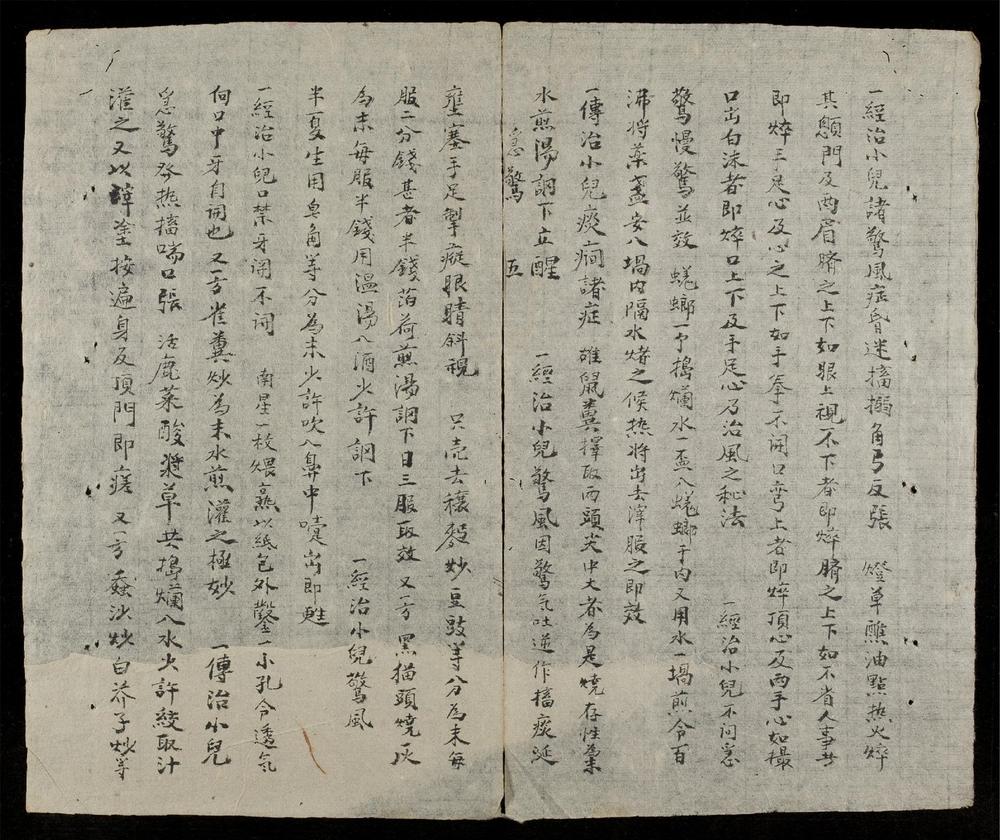 一經治小兒諸驚風症昏迷搐搦角弓反張　燈草蘸油點热火焠
其顖門及两眉臍之上下如眼上視不下者即焠臍之上下如不省人事者
即焠三足心及心之上下如手拳不開口弯上者即焠頂心及两手心如撮
口出白沫者即焠口上下及手足心乃治風之秘法　一經治小兒不问急
驚慢驚並效　蜣螂一个搗爛水一盃入蜣螂于内又用水一堝煎令百
沸将藥盞安入堝内隔水煮之候热将出去滓服之即效
一傳治小兒痰癇諸症　雄鼠糞擇取两頭尖中大者為是燒存性為末
水煎湯調下立醒　一經治小兒驚風因驚气吐逆作搐痰涎
急驚　五
壅塞手足掣瘲眼睛斜視　只壳去穰麩炒豆豉等分為末每
服二分錢甚者半錢薄荷煎湯調下日三服取效又一方黑猫頭燒灰
為末每服半錢用温湯入酒少許調下　一經治小兒驚風
半夏生用皂角等分為末少許吹入鼻中嚏出即甦
一經治小兒口禁牙關不開　南星一枚煨熟以紙包外鑿一小孔令透气
向口中牙自開也又一方雀糞炒為末水煎灌之極妙　一傳治小兒
急驚發热搐喘口張　活鹿菜酸漿草共搗爛入水少許絞取汁
灌之又以滓塗按遍身及頂門即瘥又一方蚕沙炒白芥子炒等